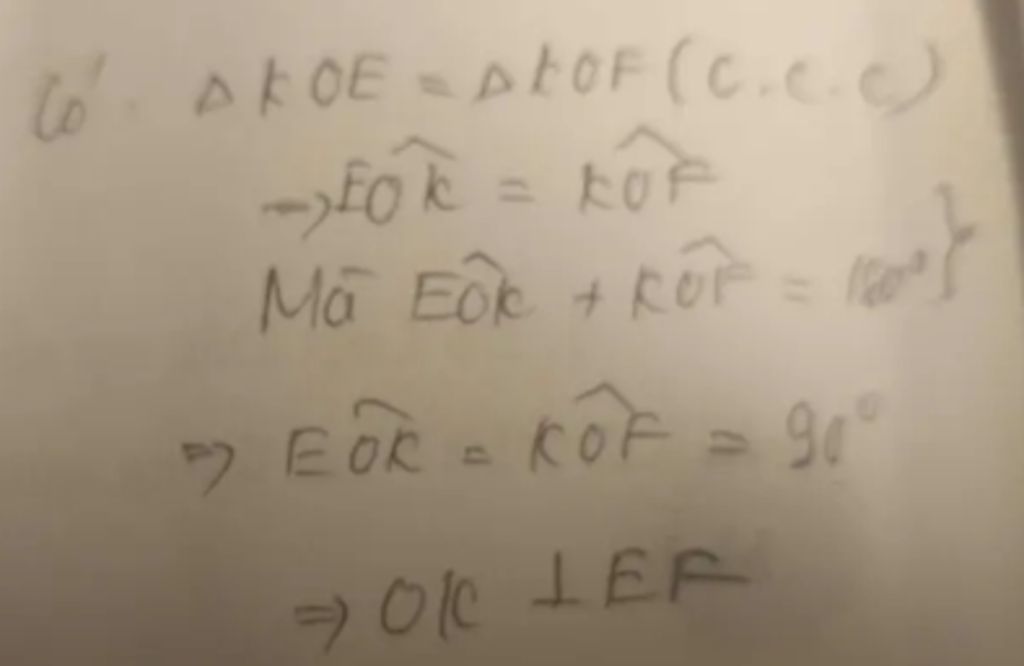 Có. Δ KOE = Δ KOF (c.c.c)
→ EOK^ = KOF^
Mà EOK^ + KOF^ = 180° }
⇒ EOK^ = KOF^ = 90°
⇒ OK ⊥ EF